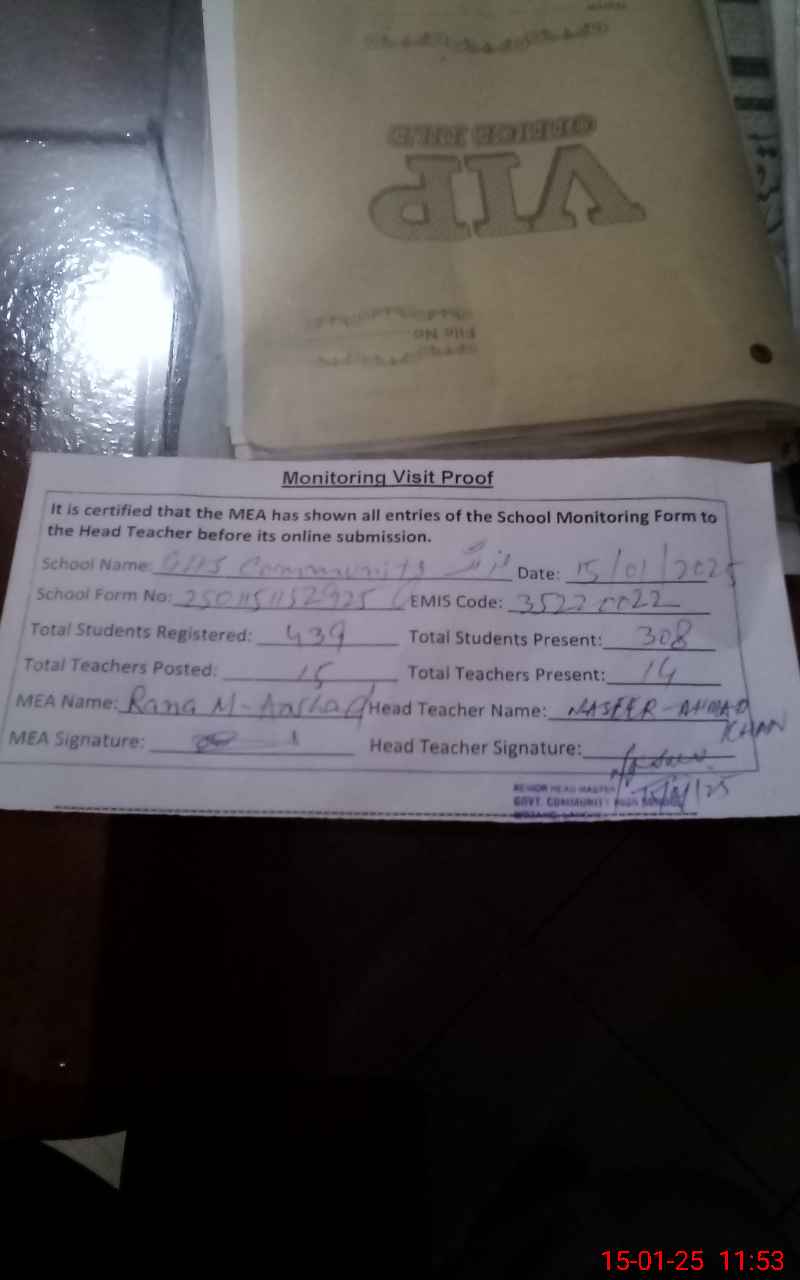 VIP
OFFICE FILE
File No
Monitoring Visit Proof
It is certified that the MEA has shown all entries of the School Monitoring Form to
the Head Teacher before its online submission.
School Name: GHS Community Date: 15/01/2025
School Form No: EMIS Code: 35220022
Total Students Registered: 439 Total Students Present: 308
Total Teachers Posted: 15 Total Teachers Present: 14
MEA Name: Rana M-Aarhad Head Teacher Name: NASEER-AHMAD
KHAN
MEA Signature: Head Teacher Signature:
SENIOR HEAD MASTER
GOVT. COMMUNITY HIGH SCHOOL
15-01-25 11:53